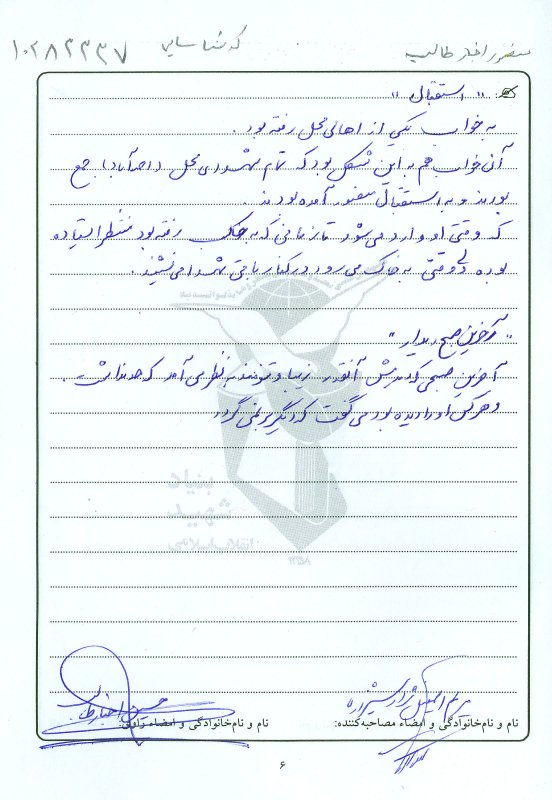 منصور اخباری طالب
کد شناسایی ۱۰۲۸۲۳۳۷
" استقبال "
به خواب یکی از اهالی محل رفته بود.
آن خواب هم به این شکل بود که تمام شهدای محل (احمدآباد) جمع
بودند و به استقبال منصور آمده بودند.
که وقتی او وارد می‌شود تا زمانی که به خاک رفته بود منتظر ایستاده
بوده و وقتی به خاک می‌رود در کنار باقی شهدا می‌نشیند.
" آخرین صبح دیدار "
آخرین صبحی که دیدمش آنقدر زیبا و تنومند به نظر می‌آمد که حد نداشت.
و هر کس او را دیده بود می‌گفت که دیگر بر نمی‌گردد
بنیاد
شهید
انقلاب اسلامی
۱۳۵۸
نام و نام‌خانوادگی و امضاء مصاحبه‌کننده:
نام و نام‌خانوادگی و امضاء راوی:
۶